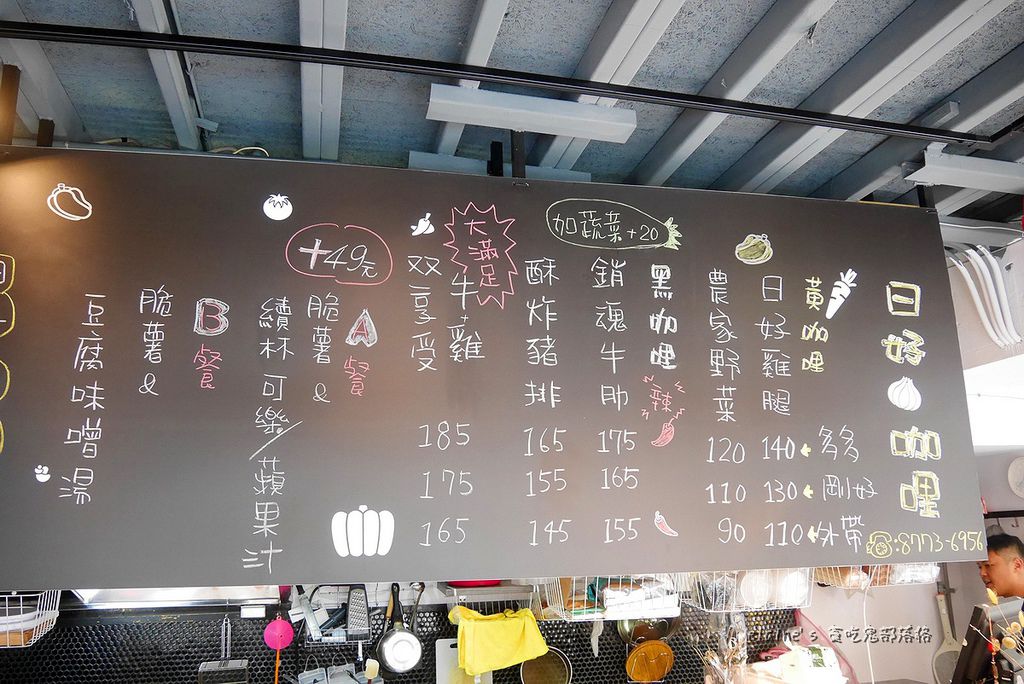 日好咖哩
☎:8773-6956
多多
剛好
外帶
黃咖哩
日好雞腿
140
130
110
農家野菜
120
110
90
黑咖哩
辣
加蔬菜+20
銷魂牛肋
175
165
155
酥炸豬排
165
155
145
大滿足
牛+雞
双享受
185
175
165
+49元
A餐
脆薯&
續杯可樂/蘋果汁
B餐
脆薯&
豆腐味噌湯
貪吃鬼部落格